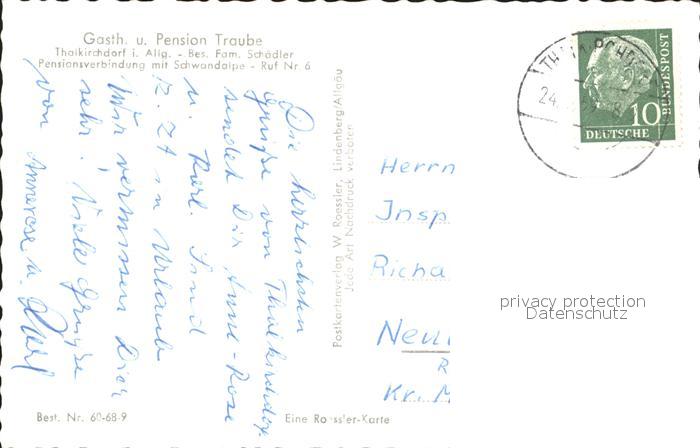 Gasth. u. Pension Traube
Thalkirchdorf i. Allg. - Bes. Fam. Schädler
Pensionsverbindung mit Schwandalpe - Ruf Nr. 6
Die herzlichsten
Grüße von Thalkirchdorf
sendet Dir Anne-Rose
u. Karl. Sind
z. Zt in Urlaub
Wir vermissen Dich
sehr. Viele Grüße
von Annerose u. Karl
Best. Nr. 60-68-9
Postkartenverlag W. Roessler, Lindenberg/Allgäu
Jede Art Nachdruck verboten
Eine Roessler-Karte
24.
10
DEUTSCHE
BUNDESPOST
Herrn
Insp
Richa
Neu
R
Kr. M
privacy protection
Datenschutz